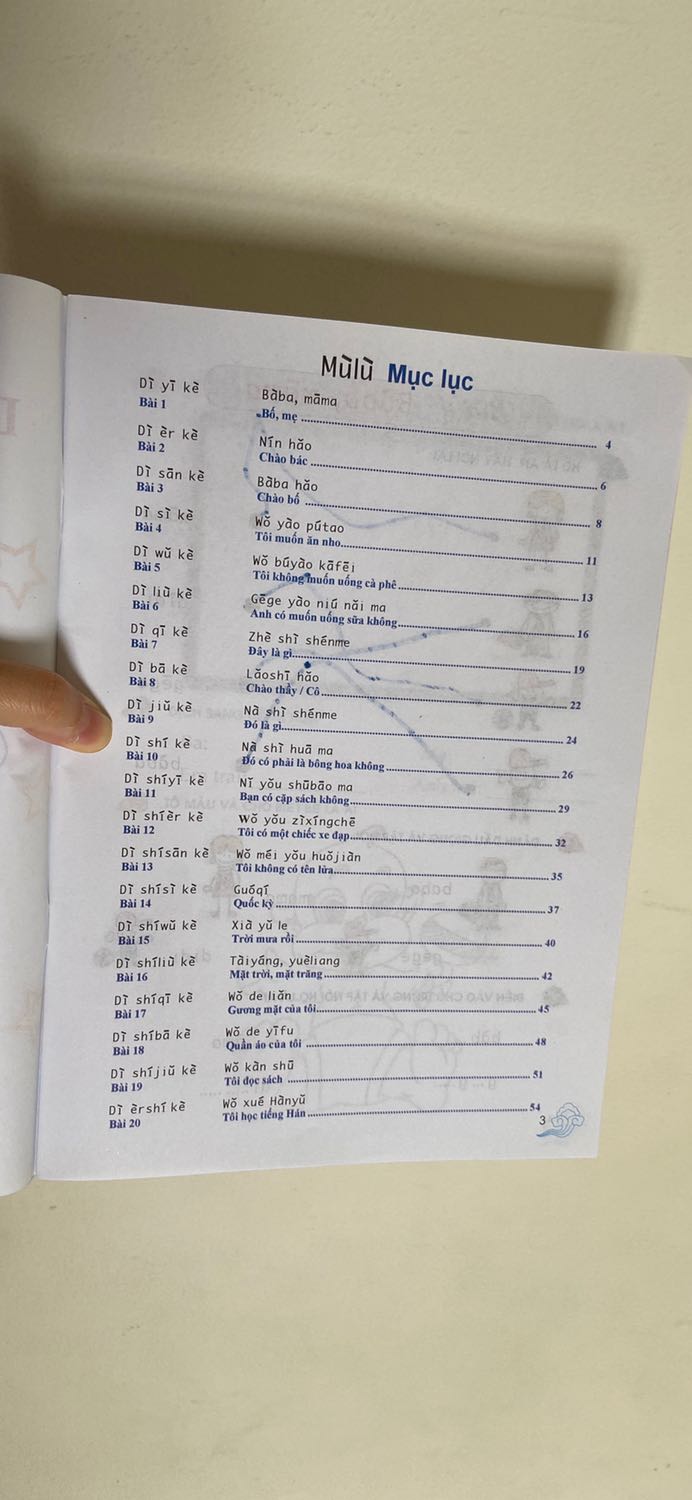 Mùlù Mục lục
Dì yī kè Bàba, māma
Bài 1 Bố, mẹ 4
Dì èr kè Nín hǎo
Bài 2 Chào bác 6
Dì sān kè Bàba hǎo
Bài 3 Chào bố 8
Dì sì kè Wǒ yào pútao
Bài 4 Tôi muốn ăn nho 11
Dì wǔ kè Wǒ búyào kāfēi
Bài 5 Tôi không muốn uống cà phê 13
Dì liù kè Gēge yào niú nǎi ma
Bài 6 Anh có muốn uống sữa không 16
Dì qī kè Zhè shì shénme
Bài 7 Đây là gì 19
Dì bā kè Lǎoshī hǎo
Bài 8 Chào thầy / Cô 22
Dì jiǔ kè Nà shì shénme
Bài 9 Đó là gì 24
Dì shí kè Nà shì huā ma
Bài 10 Đó có phải là bông hoa không 26
Dì shíyī kè Nǐ yǒu shūbāo ma
Bài 11 Bạn có cặp sách không 29
Dì shíèr kè Wǒ yǒu zìxíngchē
Bài 12 Tôi có một chiếc xe đạp 32
Dì shísān kè Wǒ méi yǒu huǒjiàn
Bài 13 Tôi không có tên lửa 35
Dì shísì kè Guóqí
Bài 14 Quốc kỳ 37
Dì shíwǔ kè Xià yǔ le
Bài 15 Trời mưa rồi 40
Dì shíliù kè Tàiyáng, yuèliang
Bài 16 Mặt trời, mặt trăng 42
Dì shíqī kè Wǒ de liǎn
Bài 17 Gương mặt của tôi 45
Dì shíbā kè Wǒ de yīfu
Bài 18 Quần áo của tôi 48
Dì shíjiǔ kè Wǒ kàn shū
Bài 19 Tôi đọc sách 51
Dì èrshí kè Wǒ xué Hànyǔ
Bài 20 Tôi học tiếng Hán 54
3